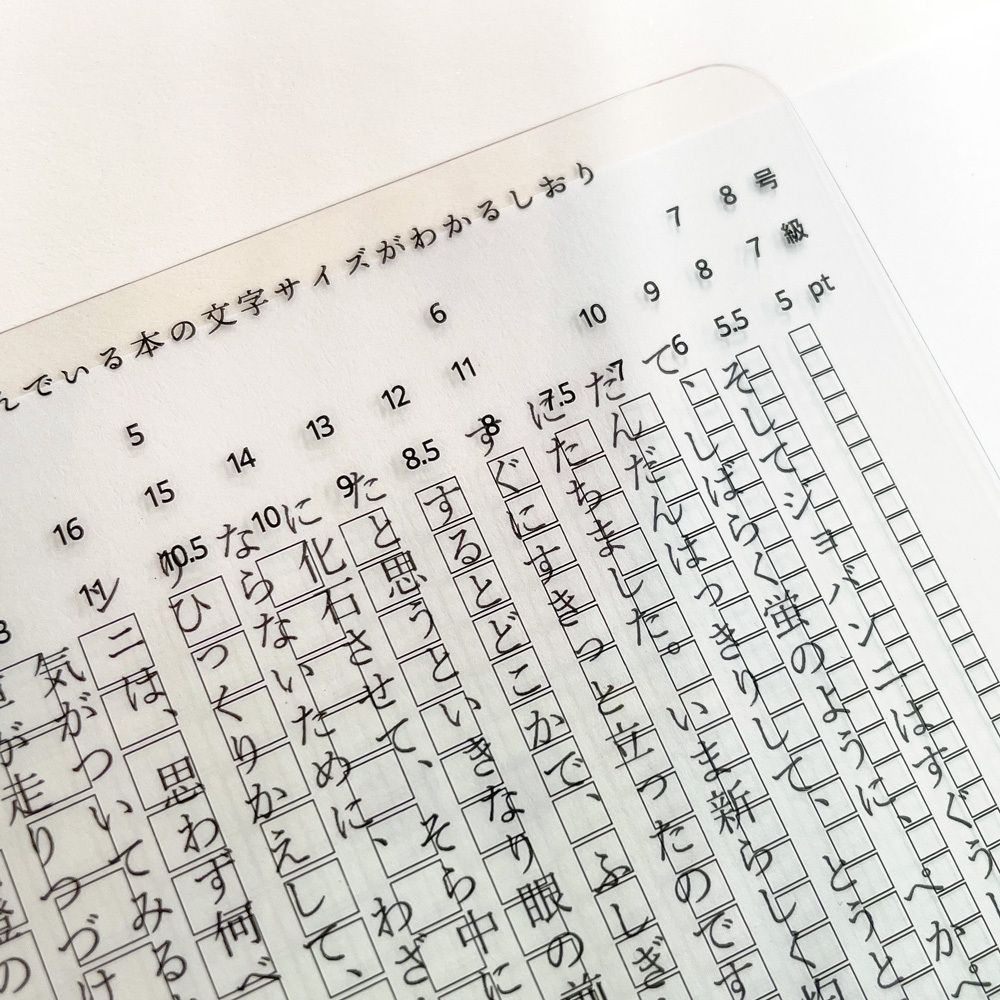 んでいる本の文字サイズがわかるしおり
5 6 7 8 号
16 15 14 13 12 11 10 9 8 7 級
11 10.5 10 9 8.5 8 7.5 7 6 5.5 5 pt
そしてジョバンニはすぐうし
て、しばらく蛍のように、ぺかぺ
だんだんはっきりして、とうと
にたちました。いま新らしく
すぐにすきっと立ったのです
するとどこかで、ふしぎ
たと思うといきなり眼の前
に化石させて、そら中に
ならないために、わざ
りひっくりかえして、
ンニは、思わず何べ
気がついてみる
が走りつづけ
の